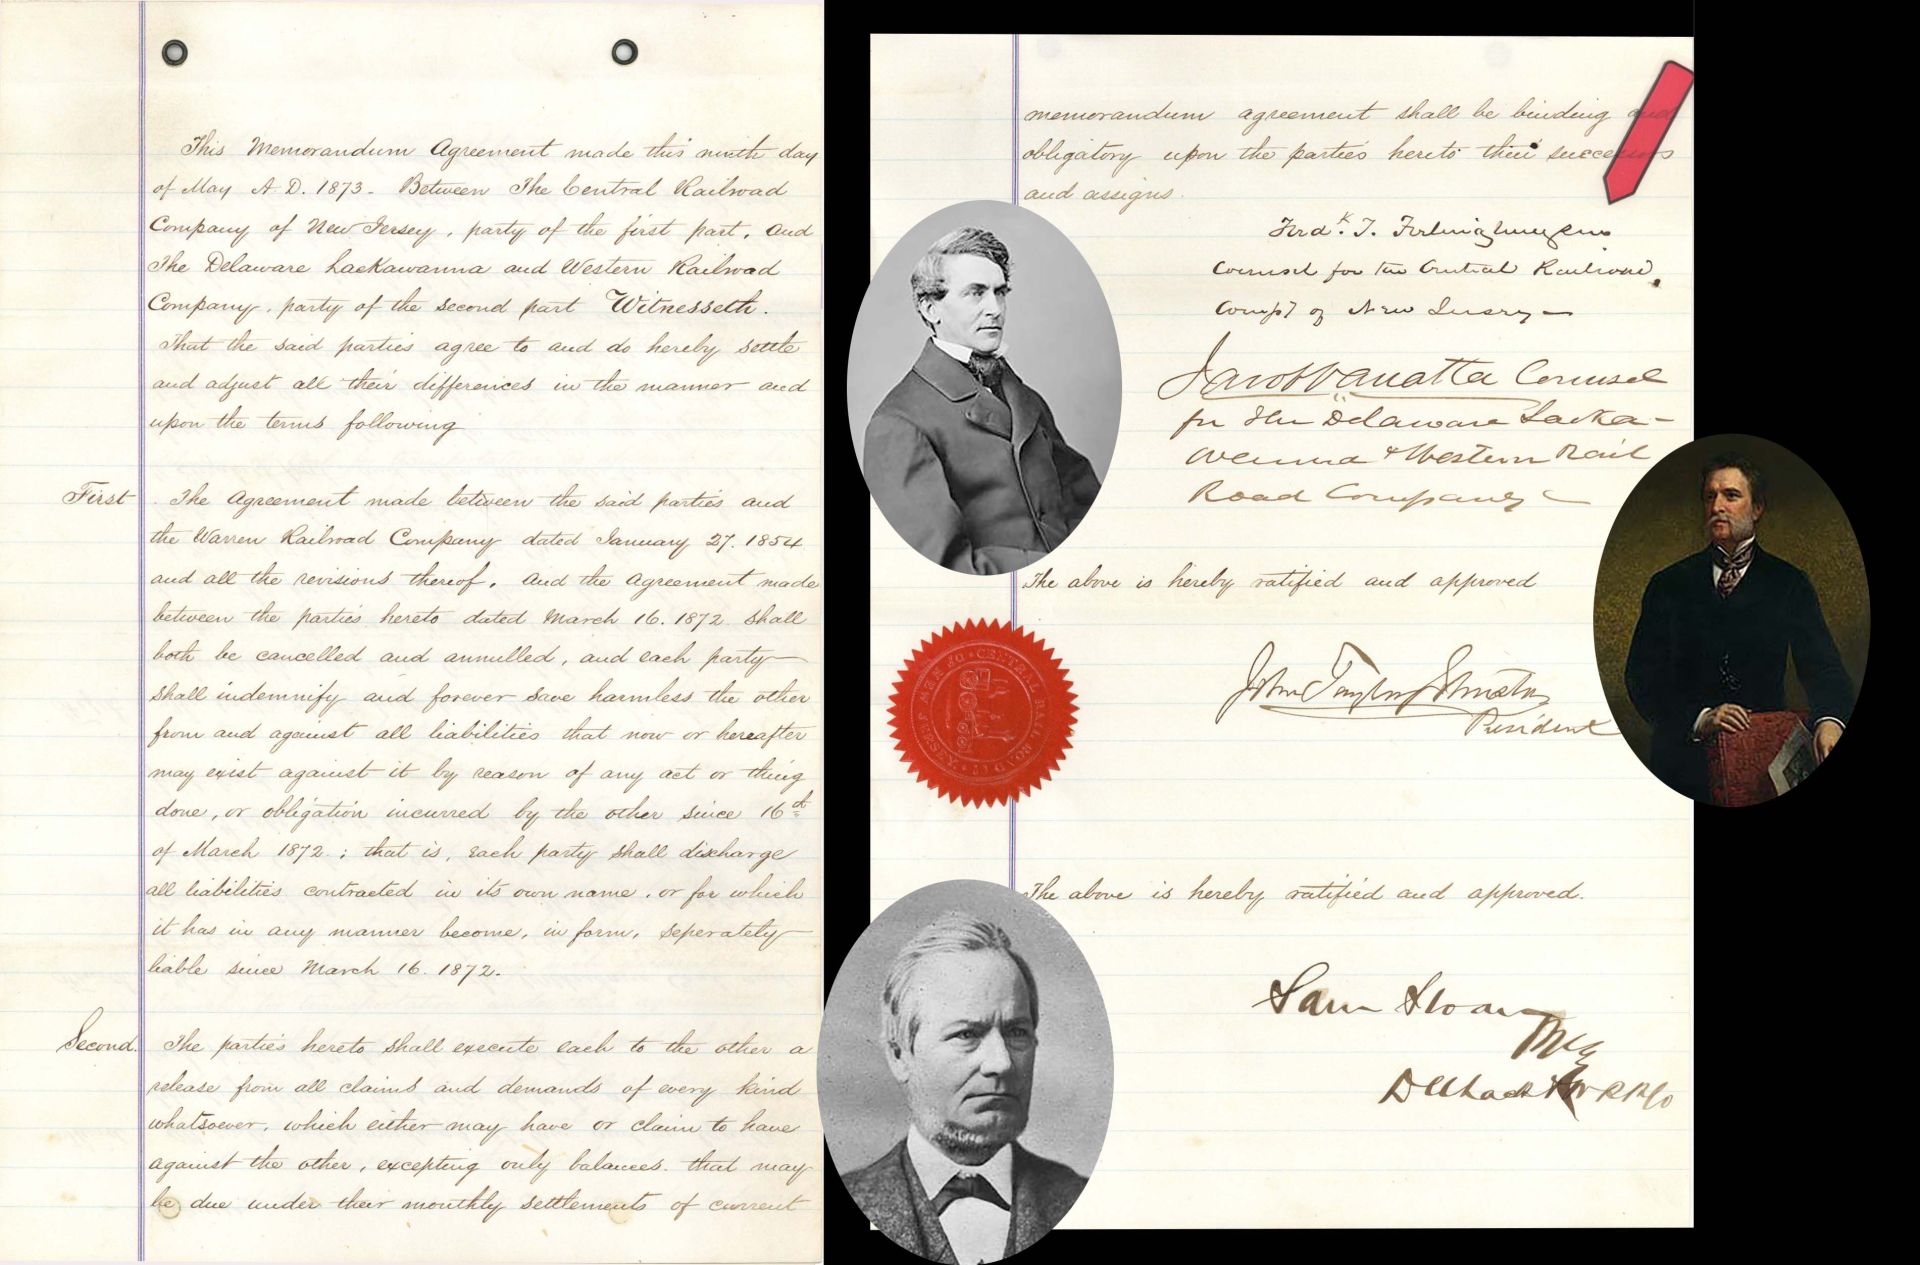 This Memorandum Agreement made this ninth day
of May A.D. 1873. Between The Central Railroad
Company of New Jersey, party of the first part, and
The Delaware Lackawanna and Western Railroad
Company, party of the second part Witnesseth.
That the said parties agree to and do hereby settle
and adjust all their differences in the manner and
upon the terms following
First The Agreement made between the said parties and
the Warren Railroad Company dated January 27. 1854
and all the revisions thereof, and the agreement made
between the parties hereto dated March 16. 1872 shall
both be cancelled and annulled, and each party
shall indemnify and forever save harmless the other
from and against all liabilities that now or hereafter
may exist against it by reason of any act or thing
done, or obligation incurred by the other since 16th
of March 1872; that is, each party shall discharge
all liabilities contracted in its own name, or for which
it has in any manner become, in form, seperately
liable since March 16. 1872.
Second. The parties hereto shall execute each to the other a
release from all claims and demands of every kind
whatsoever, which either may have or claim to have
against the other, excepting only balances that may
be due under their monthly settlements of current
memorandum agreement shall be binding and
obligatory upon the parties hereto their successors
and assigns.
Fredk. T. Frelinghuysen
Counsel for the Central Railroad
Compy of New Jersey
Jacob Vanatta Counsel
for the Delaware Lacka-
wanna & Western Rail
Road Company
The above is hereby ratified and approved
John Taylor Johnston
President
CENTRAL RAIL ROAD CO. OF NEW JERSEY
The above is hereby ratified and approved.
Sam Sloan